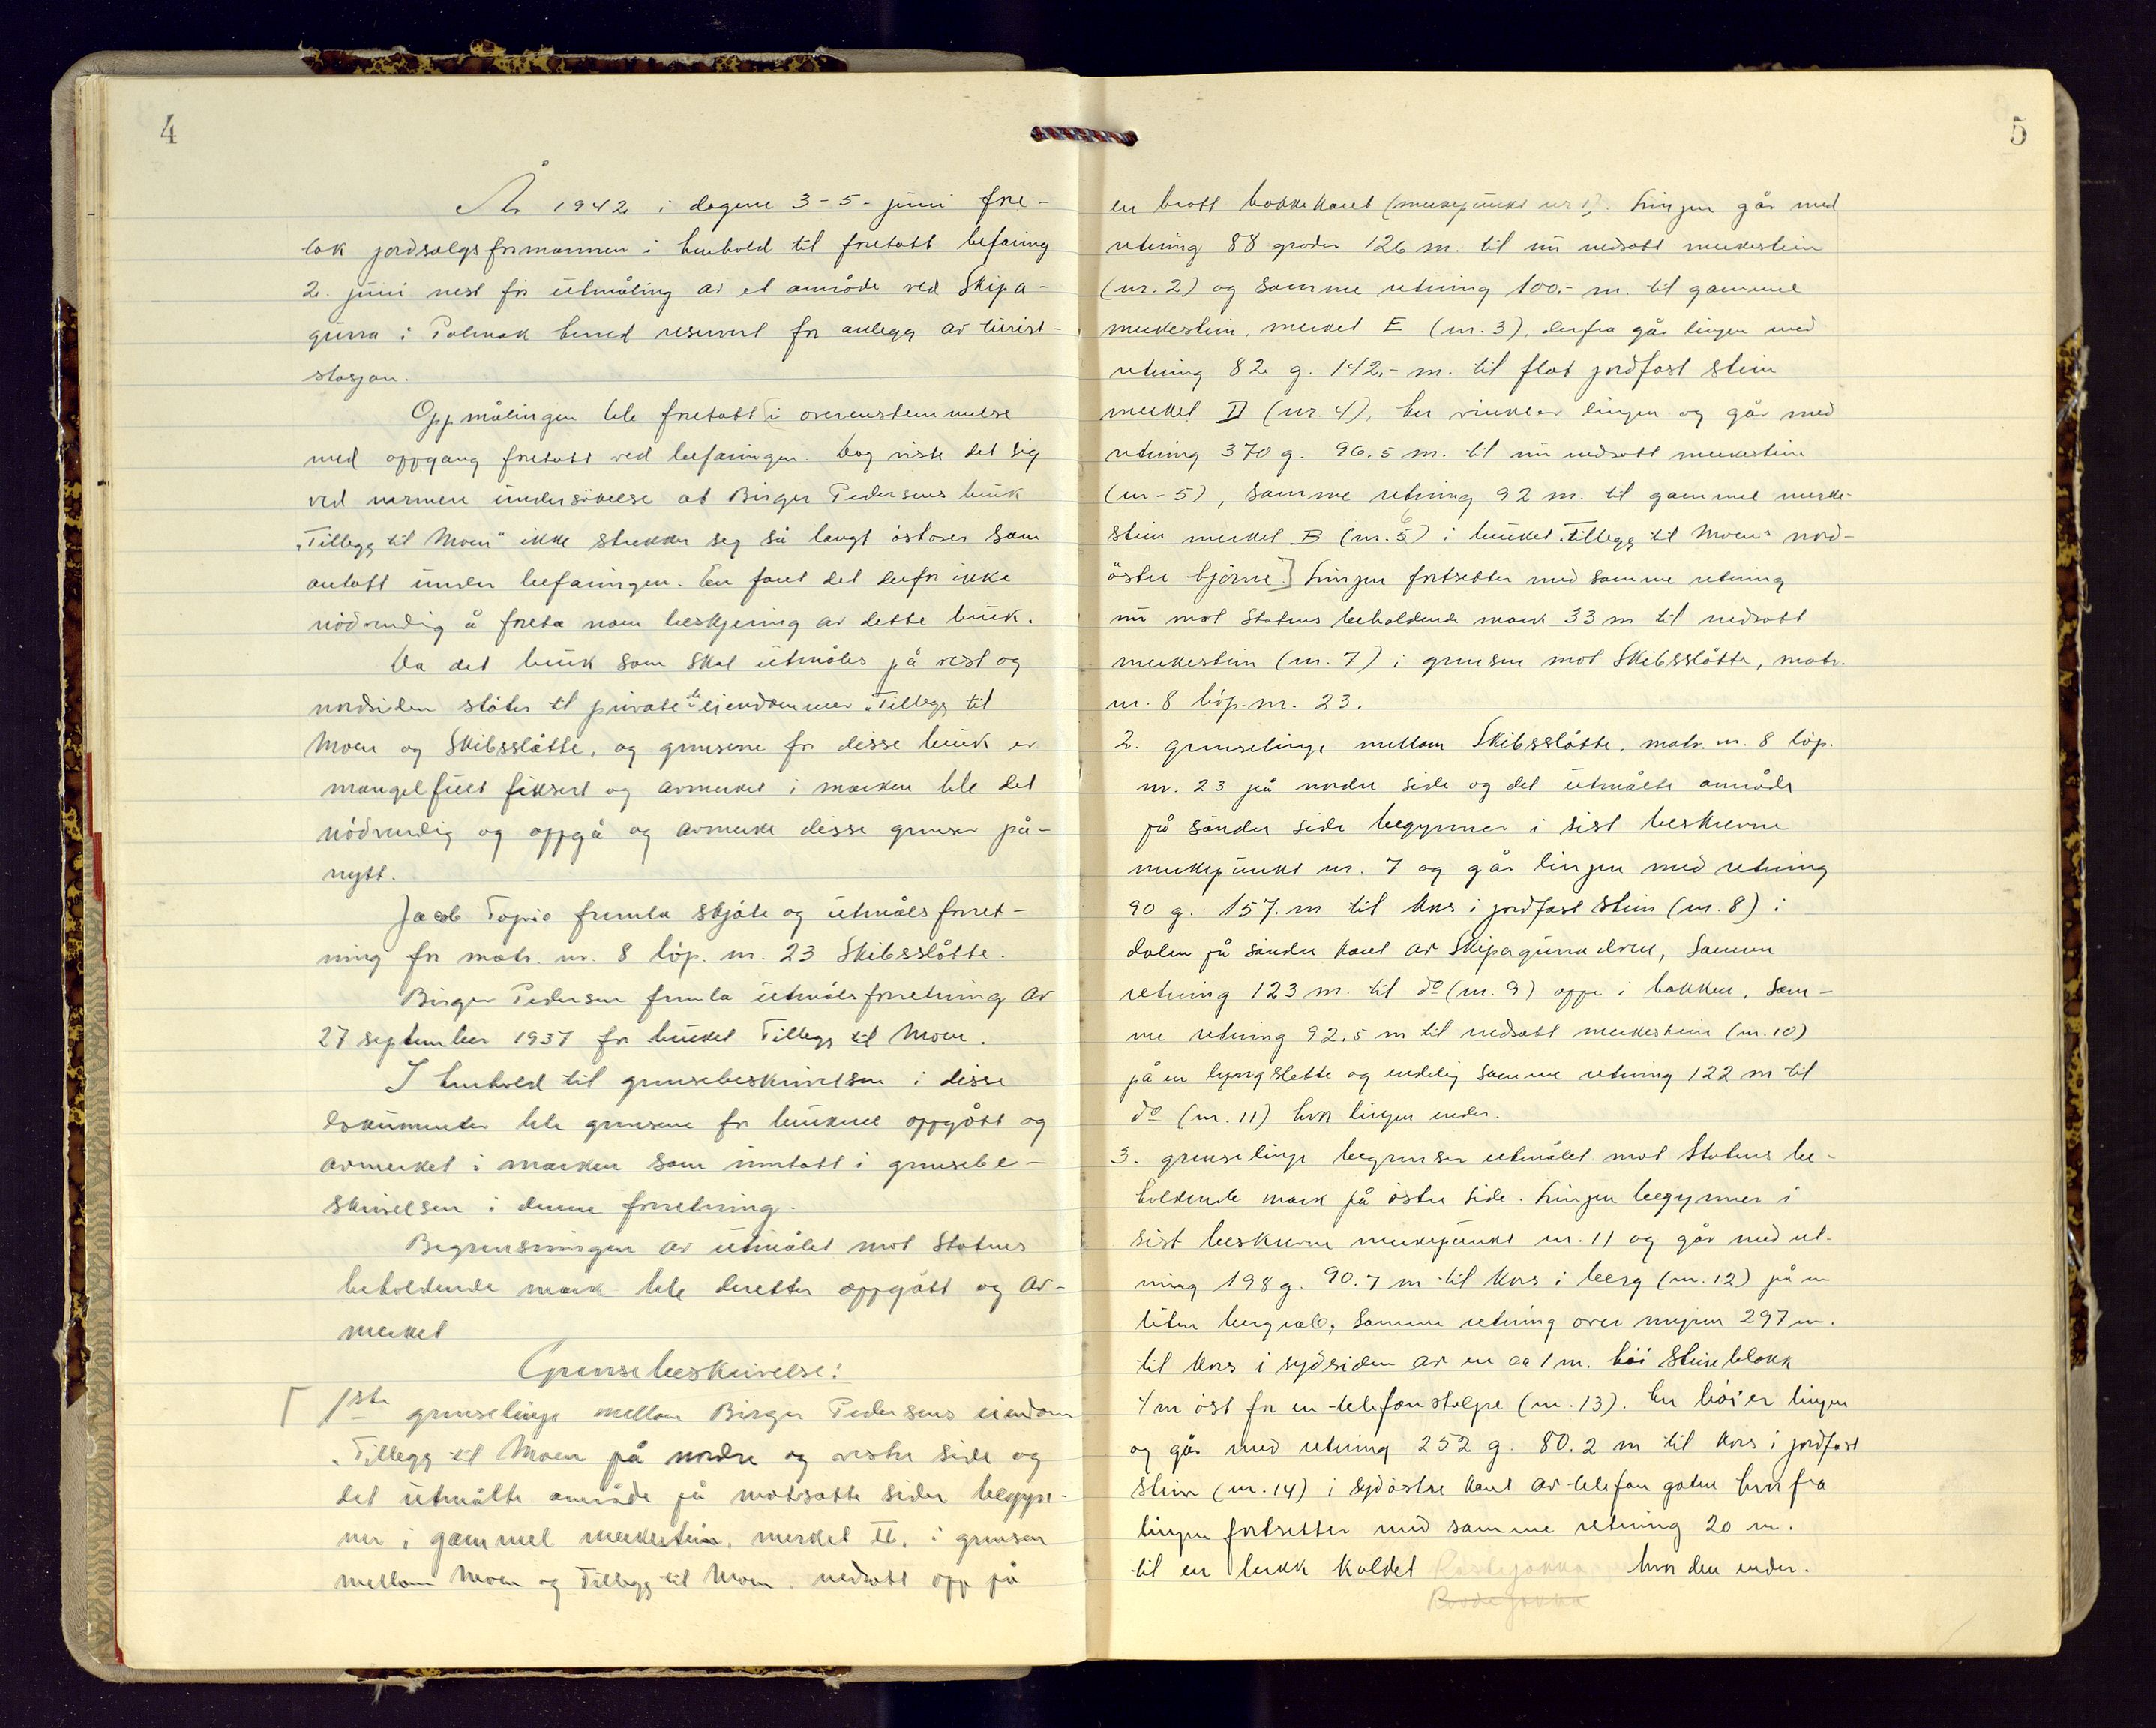 4
År 1942 i dagene 3-5- juni fore-
tok jordsalgsformannen i henhold til foretatt befaring
2. juni nest før utmåling av et område ved Skipa-
gurra i Polmak herred reservert for anlegg av turist-
stasjon.
Oppmålingen ble foretatt i overenstemmelse
med oppgang foretatt ved befaringen. Dog viste det sig
ved nærmere undersökelse at Birger Pedersens bruk
"Tillegg til Moen" ikke strekker seg så langt östover som
antatt under befaringen. En fant det derfor ikke
nödvendig å foreta noen beskjæring av dette bruk.
Da det bruk som skal utmåles på vest og
nordsiden stöter til private de eiendommer "Tillegg til
Moen og Skibsslåtte, og grensene for disse bruk er
mangelfult fiksert og avmerket i marken ble det
nödvendig og oppgå og avmerke disse grenser på-
nytt.
Jacob Topio fremla skjöte og utmålsforret-
ning for matr. nr. 8 löp. nr. 23 Skibsslåtte.
Birger Pedersen fremla utmålsforretning av
27 september 1937 for bruket Tillegg til Moen.
I henhold til grensebeskrivelsen i disse
dokumenter ble grensene for brukene oppgått og
avmerket i marken som inntatt i grensebe-
skrivelsen i denne forretning.
Begrensningen av utmålet mot Statens
beholdende mark ble deretter oppgått og av-
merket
Grensebeskrivelse:
[ 1ste grenselinje mellom Birger Pedersens eiendom
"Tillegg til Moen på nordre og vestre side og
det utmålte område på motsatte sider begyn-
ner i gammel merkestein, merket II, i grensen
mellom Moen og Tillegg til Moen. nedsatt opp på
5
en bratt bakkekant (merkepunkt nr 1). Linjen går med
retning 88 grader 126 m. til ny nedsatt merkestein
(nr. 2) og samme retning 100,- m. til gammel
merkestein, merket E (nr. 3), derfra går linjen med
retning 82 g. 142,- m. til flat jordfast stein
merket D (nr. 4), her vinkler linjen og går med
retning 370 g. 96.5 m. til ny nedsatt merkestein
(nr-5), samme retning 92 m. til gammel merke-
stein merket B (nr. 6) i bruket "Tillegg til Moens nord-
östre hjörne.] Linjen fortsetter med samme retning
nu mot Statens beholdende mark 33 m til nedsatt
merkestein (nr. 7) i grensen mot Skibsslåtte, matr.
nr. 8 löp. nr. 23.
2. grenselinje mellom Skibsslåtte, matr. nr. 8 löp.
nr. 23 på nordre side og det utmålte område
på söndre side begynner i sist beskrevne
merkepunkt nr. 7 og går linjen med retning
90 g. 157. m til kors i jordfast stein (nr. 8) i
dalen på söndre kant av Skipagurraelven, samme
retning 123 m. til do (nr. 9) oppe i bakken, sam-
me retning 92,5 m til nedsatt merkestein (nr. 10)
på en lyngslette og endelig samme retning 122 m til
do (nr. 11) hvor linjen ender.
3. grenselinje begrenser utmålet mot Statens be-
holdende mark på östre side. Linjen begynner i
sist beskrevne merkepunkt nr. 11 og går med ret-
ning 198 g. 90.7 m til kors i berg (nr. 12) på en
liten bergrab, samme retning over myren 297 m.
til kors i sydsiden av en ca 1 m. höi steinblokk
4 m öst for en telefonstolpe (nr. 13). Her böier linjen
og går med retning 252 g. 80.2 m til kors i jordfast
stein (nr. 14) i sydöstre kant av telefongaten hvorfra
linjen fortsetter med samme retning 20 m.
til en bekk kaldet hvor den ender.